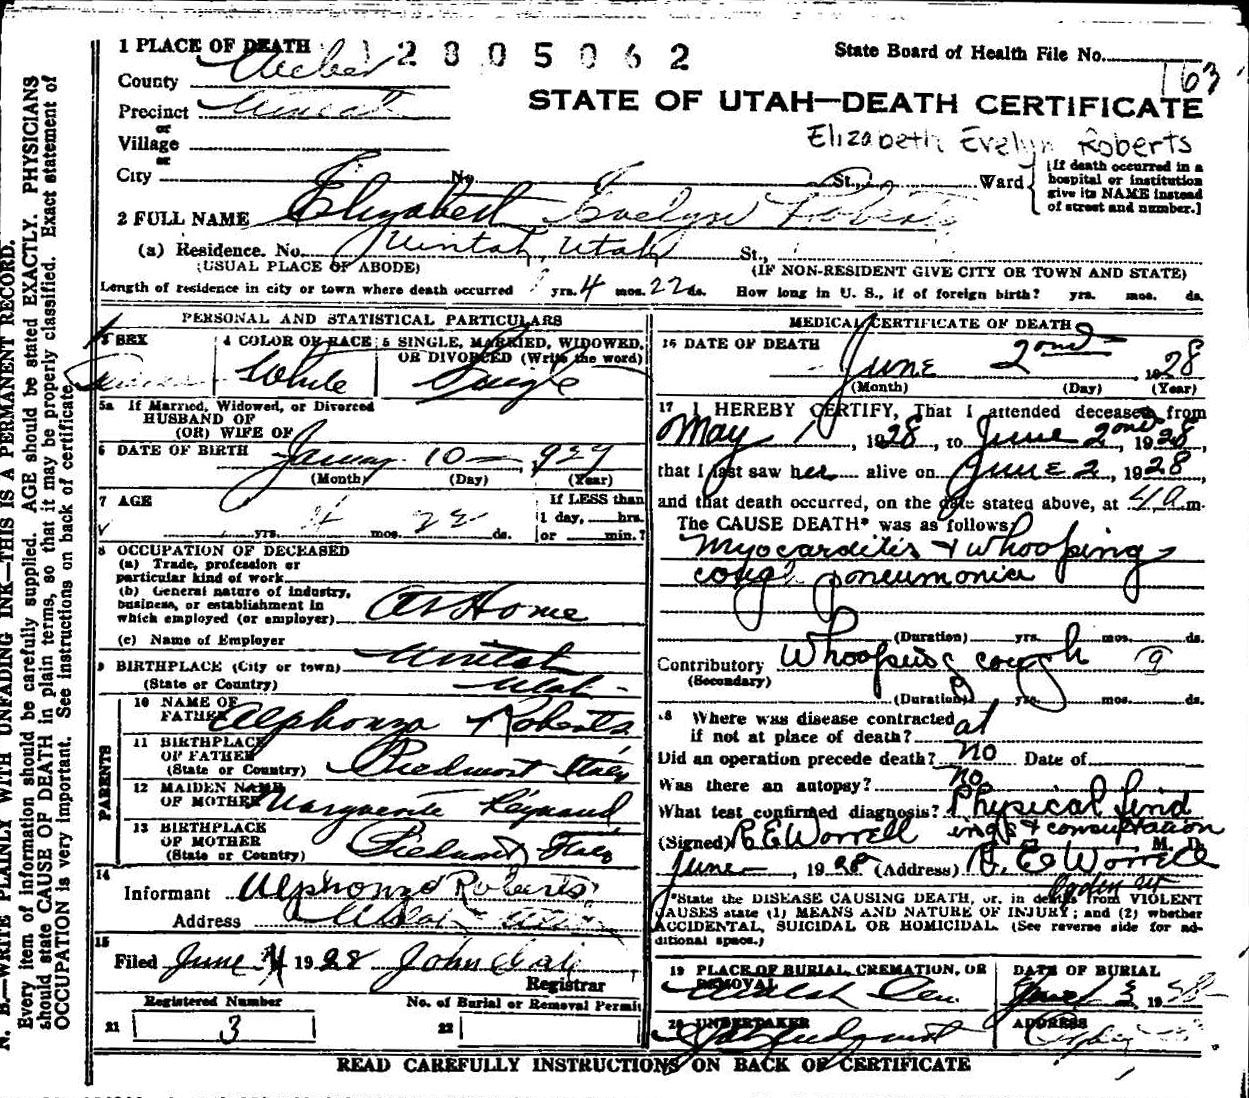 1 PLACE OF DEATH 1 2 8 0 5 0 6 2 State Board of Health File No. 163
County Weber
Precinct Uintah
STATE OF UTAH—DEATH CERTIFICATE
or
Village
Elizabeth Evelyn Roberts
or
City No. St., Ward
[If death occurred in a
hospital or institution
give its NAME instead
of street and number.]
2 FULL NAME Elizabeth Evelyn Roberts
(a) Residence. No. Uintah, Utah St.,
(USUAL PLACE OF ABODE) (IF NON-RESIDENT GIVE CITY OR TOWN AND STATE)
Length of residence in city or town where death occurred yrs. 4 mos. 22 ds. How long in U. S., if of foreign birth? yrs. mos. ds.
PERSONAL AND STATISTICAL PARTICULARS
3 SEX
4 COLOR OR RACE
White
5 SINGLE, MARRIED, WIDOWED,
OR DIVORCED (Write the word)
Single
5a If Married, Widowed, or Divorced
HUSBAND OF
(OR) WIFE OF
6 DATE OF BIRTH January 10 1927
(Month) (Day) (Year)
7 AGE
yrs. 4 mos. 22 ds.
If LESS than
1 day, hrs.
or min.?
8 OCCUPATION OF DECEASED
(a) Trade, profession or
particular kind of work
(b) General nature of industry,
business, or establishment in
which employed (or employer) At Home
(c) Name of Employer
9 BIRTHPLACE (City or town) Uintah
(State or Country) Utah
PARENTS
10 NAME OF
FATHER Alphonzo Roberts
11 BIRTHPLACE
OF FATHER
(State or Country) Piedmont Italy
12 MAIDEN NAME
OF MOTHER Marguerite Reynaud
13 BIRTHPLACE
OF MOTHER
(State or Country) Piedmont, Italy
14
Informant Alphonzo Roberts
Address
15
Filed June 4 1928 John
Registrar
Registered Number No. of Burial or Removal Permit
21 3 22
MEDICAL CERTIFICATE OF DEATH
16 DATE OF DEATH
June 2nd 1928
(Month) (Day) (Year)
17 I HEREBY CERTIFY, That I attended deceased from
May 1, 1928, to June 2nd, 1928,
that I last saw her alive on June 2, 1928
and that death occurred, on the date stated above, at 4 a m.
The CAUSE DEATH* was as follows:
Myocarditis & whooping
cough pneumonia
(Duration) yrs. mos. ds.
Contributory Whooping cough 9
(Secondary)
(Duration) yrs. mos. ds.
18 Where was disease contracted
if not at place of death? at
Did an operation precede death? no Date of
Was there an autopsy? no
What test confirmed diagnosis? Physical find
ings & consultation
(Signed) R. E. Worrell M. D.
June, 1928 (Address) R. E. Worrell
Ogden Ut
*State the DISEASE CAUSING DEATH, or, in deaths from VIOLENT
CAUSES state (1) MEANS AND NATURE OF INJURY; and (2) whether
ACCIDENTAL, SUICIDAL OR HOMICIDAL. (See reverse side for ad-
ditional space.)
19 PLACE OF BURIAL, CREMATION, OR
REMOVAL
Uintah Cem.
DATE OF BURIAL
June 3 1928
20 UNDERTAKER
ADDRESS
READ CAREFULLY INSTRUCTIONS ON BACK OF CERTIFICATE
N. B.—WRITE PLAINLY WITH UNFADING INK—THIS IS A PERMANENT RECORD.
Every item of information should be carefully supplied. AGE should be stated EXACTLY. PHYSICIANS
should state CAUSE OF DEATH in plain terms, so that it may be properly classified. Exact statement of
OCCUPATION is very important. See instructions on back of certificate.